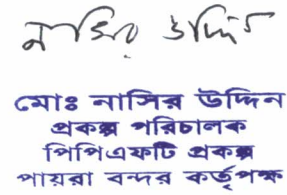 নাসির উদ্দিন
মোঃ নাসির উদ্দিন
প্রকল্প পরিচালক
পিপিএফটি প্রকল্প
পায়রা বন্দর কর্তৃপক্ষ